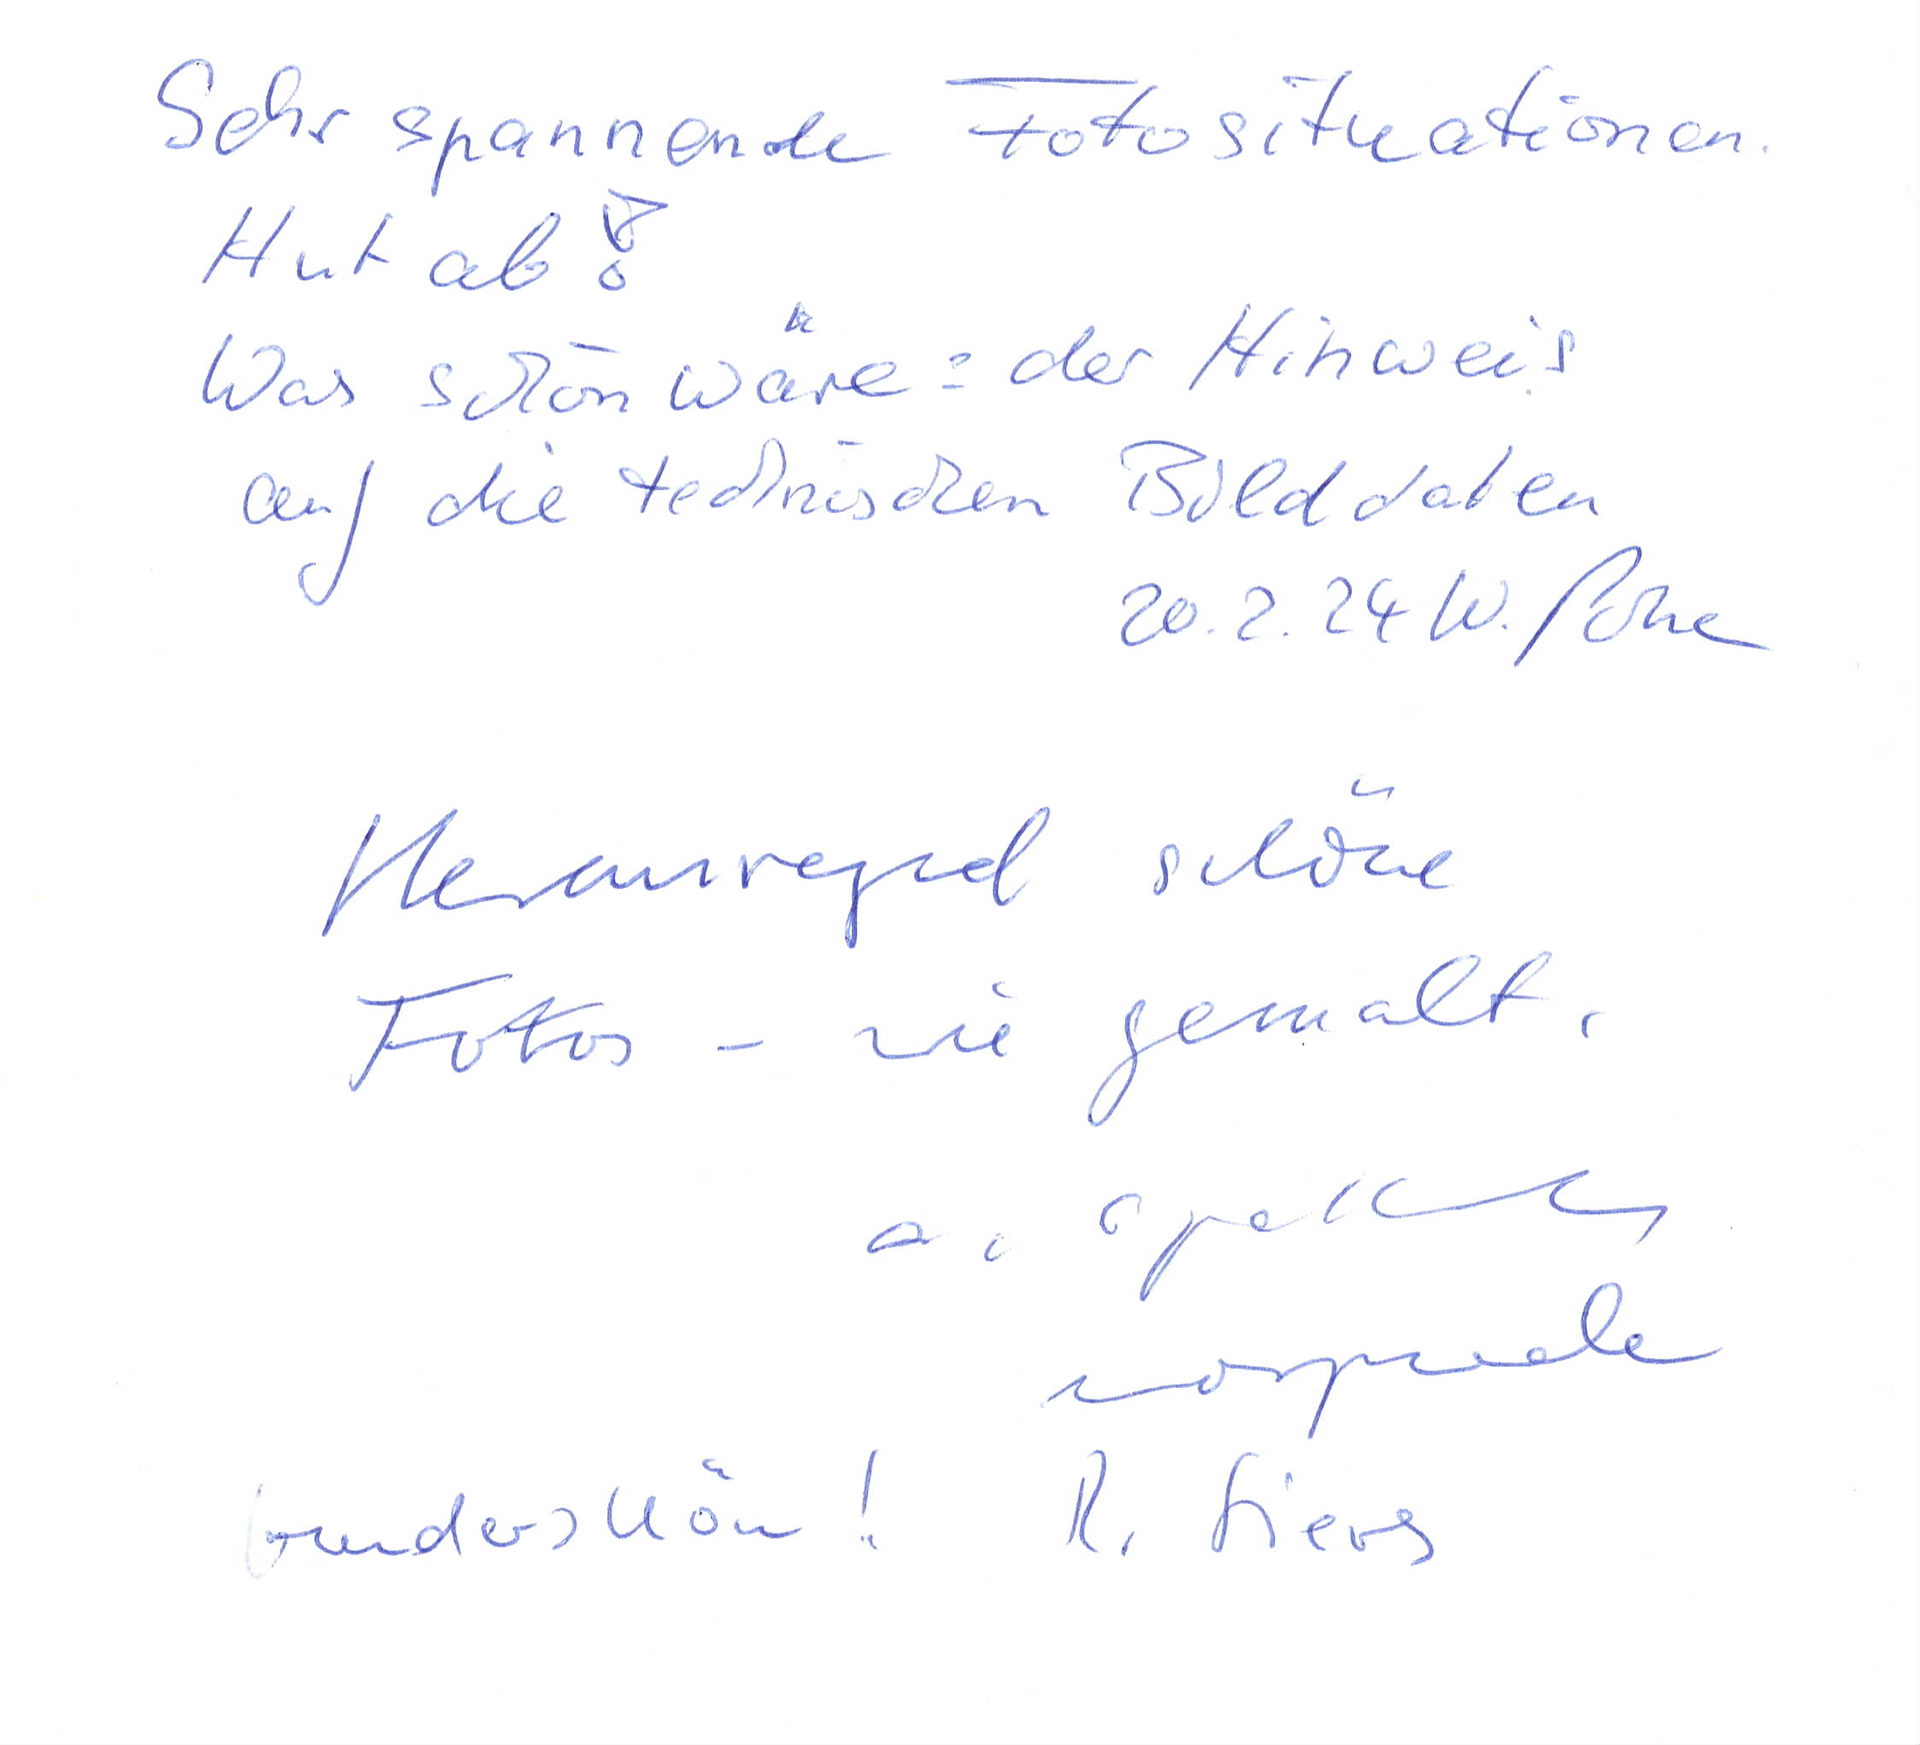 Sehr spannende Fotosituationen.
Hut ab!
Was schön wäre: der Hinweis
auf die technischen Bilddaten
20.2.24 W.
Herausragend schöne
Fotos - wie gemalt.
a.
Worpswede
Wunderschön! R. Sievers